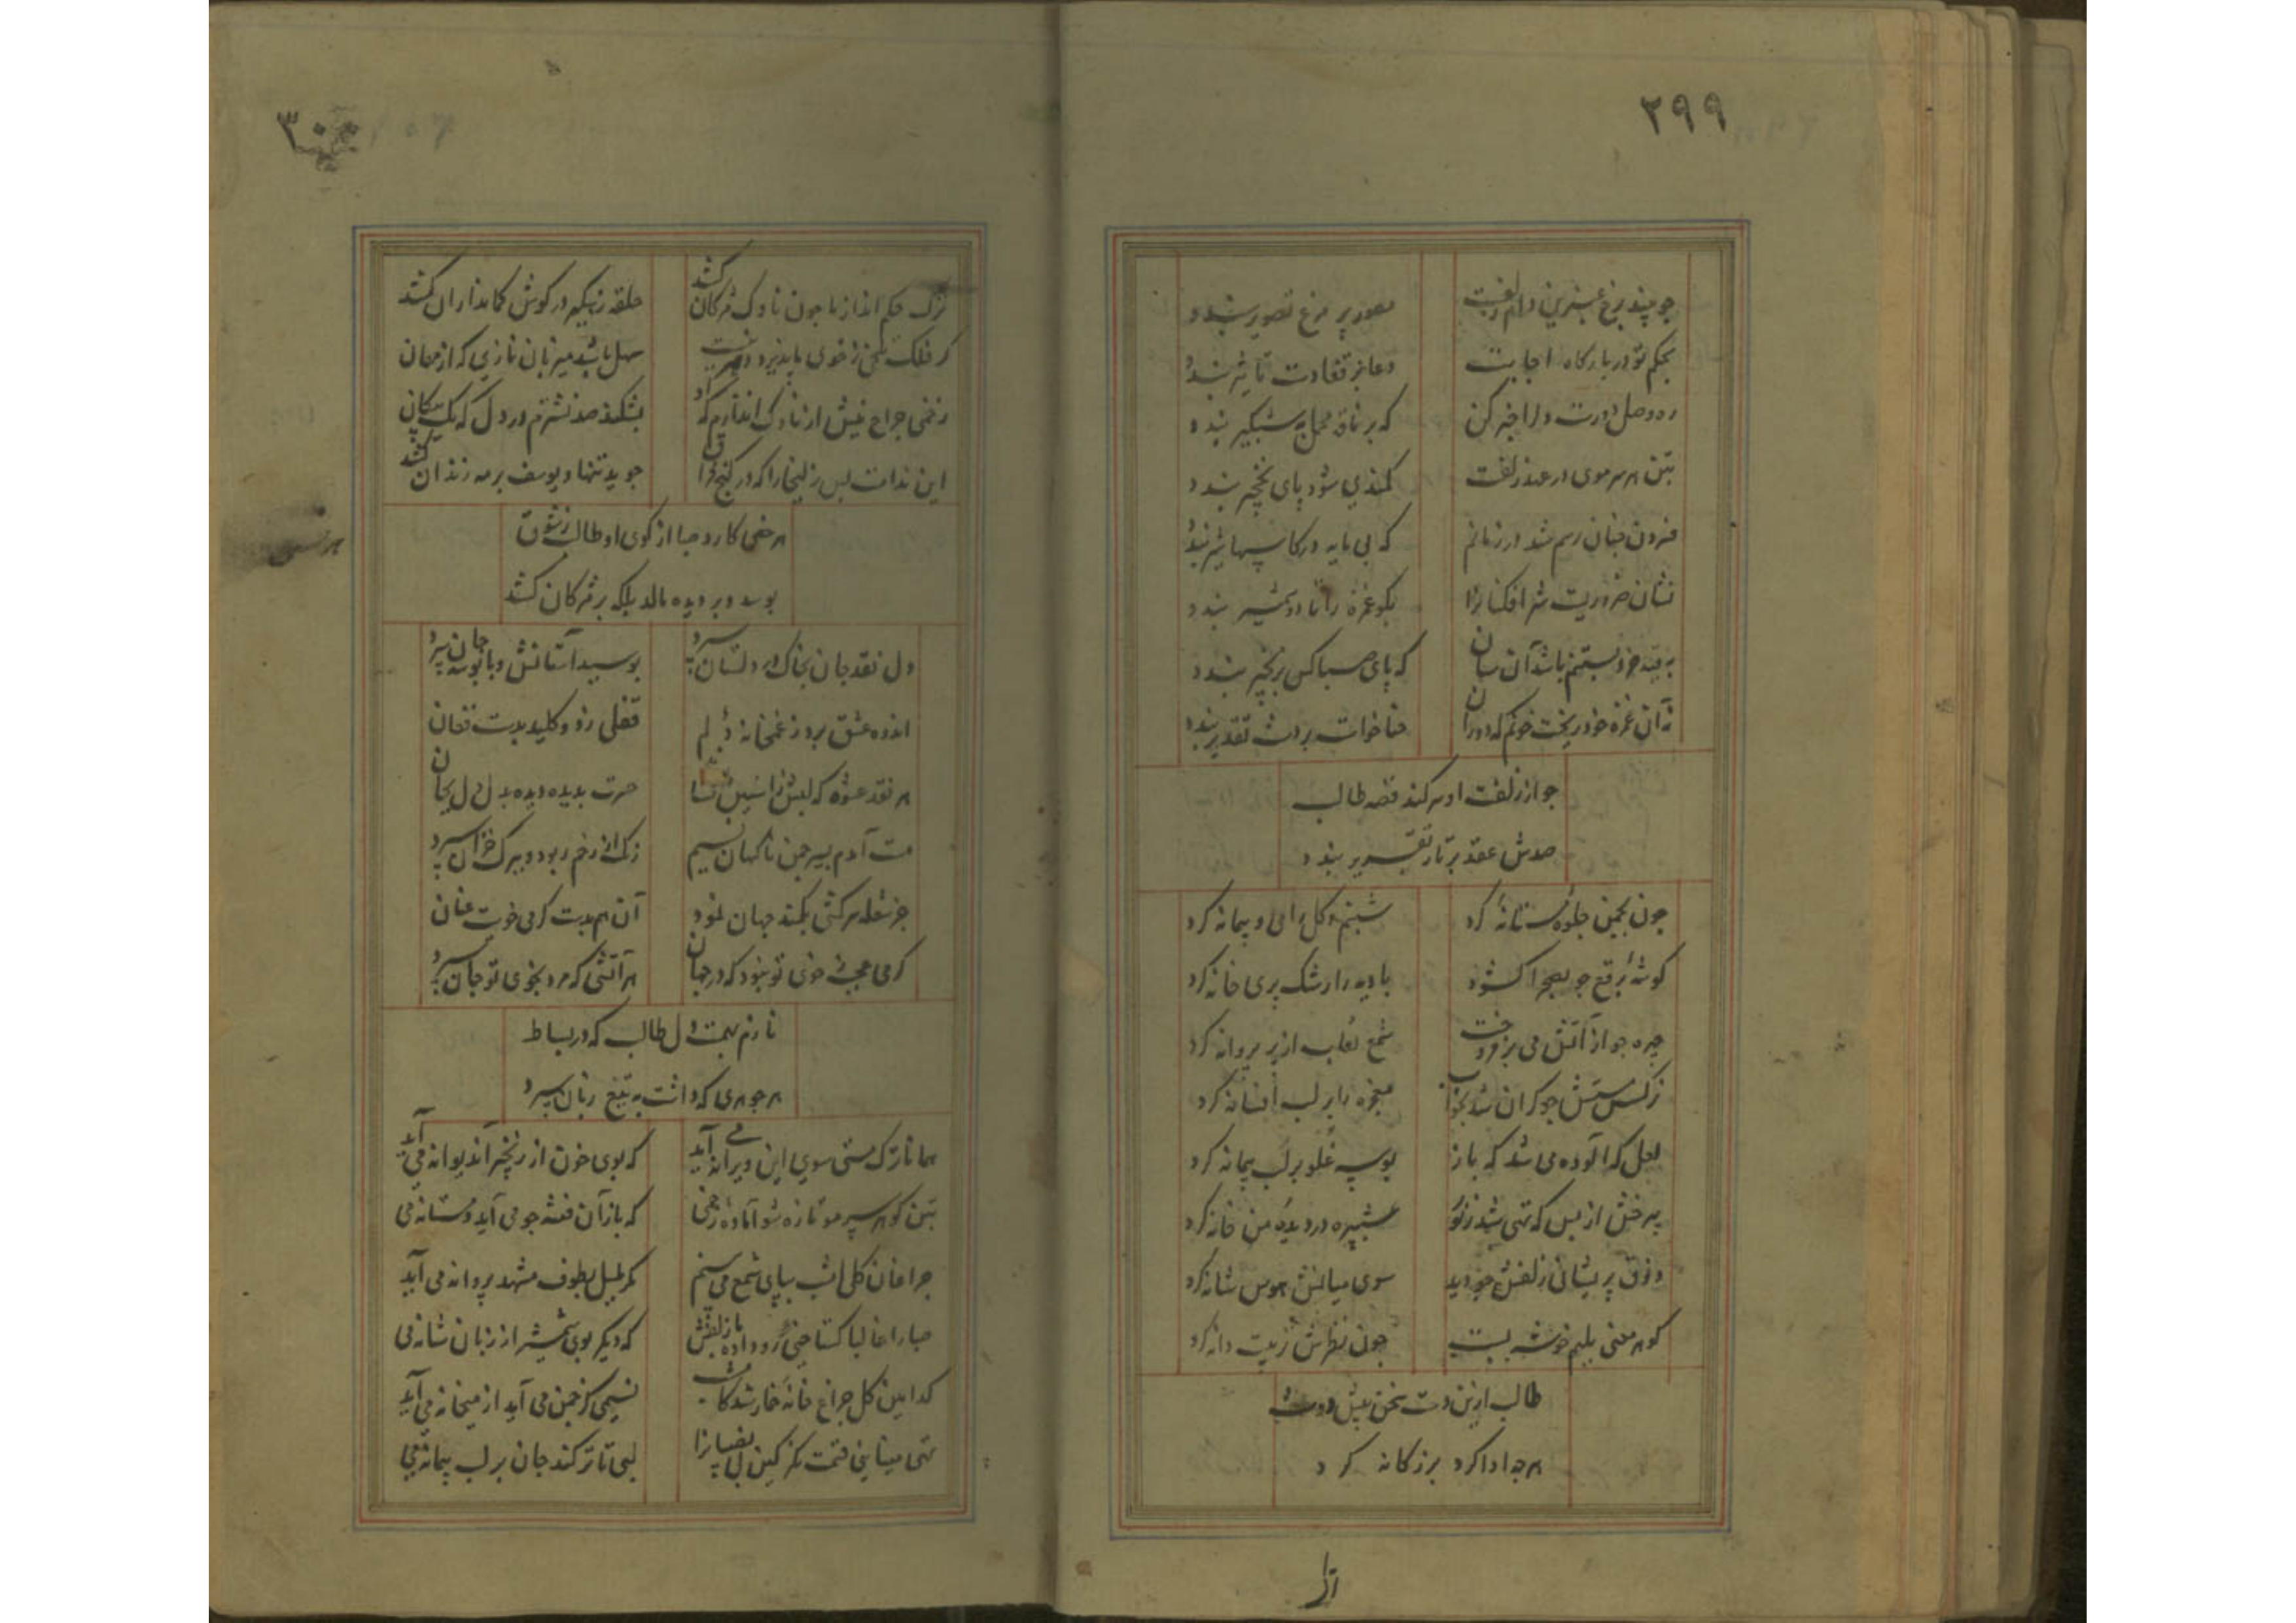 ۲۹۹
جو بیند برخ عنبرین دام زلفت مصور پر مرغ تصویر بندد
بحکم تو در بارکاه اجابت دعا بر قفا دست تاثیر بندد
ره وصل دورست دل را خبر کن که بر ناقه محمل به شبکیر بندد
بتن هر سر موی در عهد زلفت کمندی شود پای نخجیر بندد
فزون جنان رسم شد در زمانم که بی مایه در کاسها شیر بندد
نشان ضروریست شیر افکنانرا بکو غمزه را تا دو شمشیر بندد
به قید خرد بستنم باشد آن سان که پای صبا کس بزنجیر بندد
نه آن غمزه خود ریخت خونم که دوران حنا خواست بر دست تقدیر بندد
جو از زلفت او سر کند قصه طالب
صدش عقد بر تار تقریر بندد
جون بجمن جلوه مستانه کرد شبنم و کل را می و پیمانه کرد
کوشه برقع جو بصحرا کشود بادیه را رشک پری خانه کرد
جهره جو از آتش می برفروخت شمع نقاب از پر پروانه کرد
نرکس مستش جو کران شد بخواب معجزه را بر لب افسانه کرد
لعل که آلوده می شد که باز بوسه غلو بر لب پیمانه کرد
بی رخش از بس که تهی شد ز نور شبپره در دیده من خانه کرد
ذوق پریشانی زلفش جو دید سوی میانش هوس شانه کرد
کوهر معنی بلبم خوشه بست جون نظرش تربیت دانه کرد
طالب ازین دست سخن پیش دوست
هرجه ادا کرد بزرکانه کرد
۳۰۰
ترک حکم انداز ما جون ناوک مژکان کشد حلقه زهکیر در کوش کمانداران کشد
کر فلک تلخی ز خوی ما پذیرد دور نیست سهل باشد میزبان نازی که از مهمان
زخمی جراح خویش از ناوک اندازم که او بشکند صد نشترم در دل که یک پیکان
این ندامت بس زلیخا را که در کنج فراق جوید تنها و یوسف بر مه زندان کشد
هر خسی کارد صبا از کوی او طالب ز شوق
بوسد و بر دیده مالد بلکه بر مژکان کشد
دل نقد جان بخاک در دلستان سپرد بوسید آستانش و با بوسه جان سپرد
اندوه عشق بر در غمخانه دلم قفلی زد و کلید بدست فغان
حسرت بدیده دیده بدل دل بجان
مست آمدم بسیر جمن ناکهان نسیم رنک از رخم ربود و ببرک خزان سپرد
جز شعله سرکشی بکمند جهان نبود آن هم بدست کرمی خویت عنان
کرمی عجب ز خوی تو نبود که در جهان هر آتشی که مرد بخوی تو جان سپرد
نازم بهمت دل طالب که در بساط
هر جوهری که داشت به تیغ زبان سپرد
همانا ترک مستی سوی این ویرانه می آید که بوی خون از زنجیر آن دیوانه می آید
بتن کو هر سر مو تازه شو آماده زخمی که باز آن فتنه جو می آید و مستانه می
جراغان کلی امشب بپای شمع می بینم مکر بلبل بطوف مشهد پروانه می آید
صبا را غالبا کستاخیی رو داده با زلفش که دیکر بوی شمشیر از زبان شانه می
کدامین کل جراغ خانه خمار شد کامشب نسیمی کز جمن می آید از میخانه می آید
تهی مینایی قسمت مکر کین لب ضیایانرا لبی تا تر کند جان بر لب پیمانه می